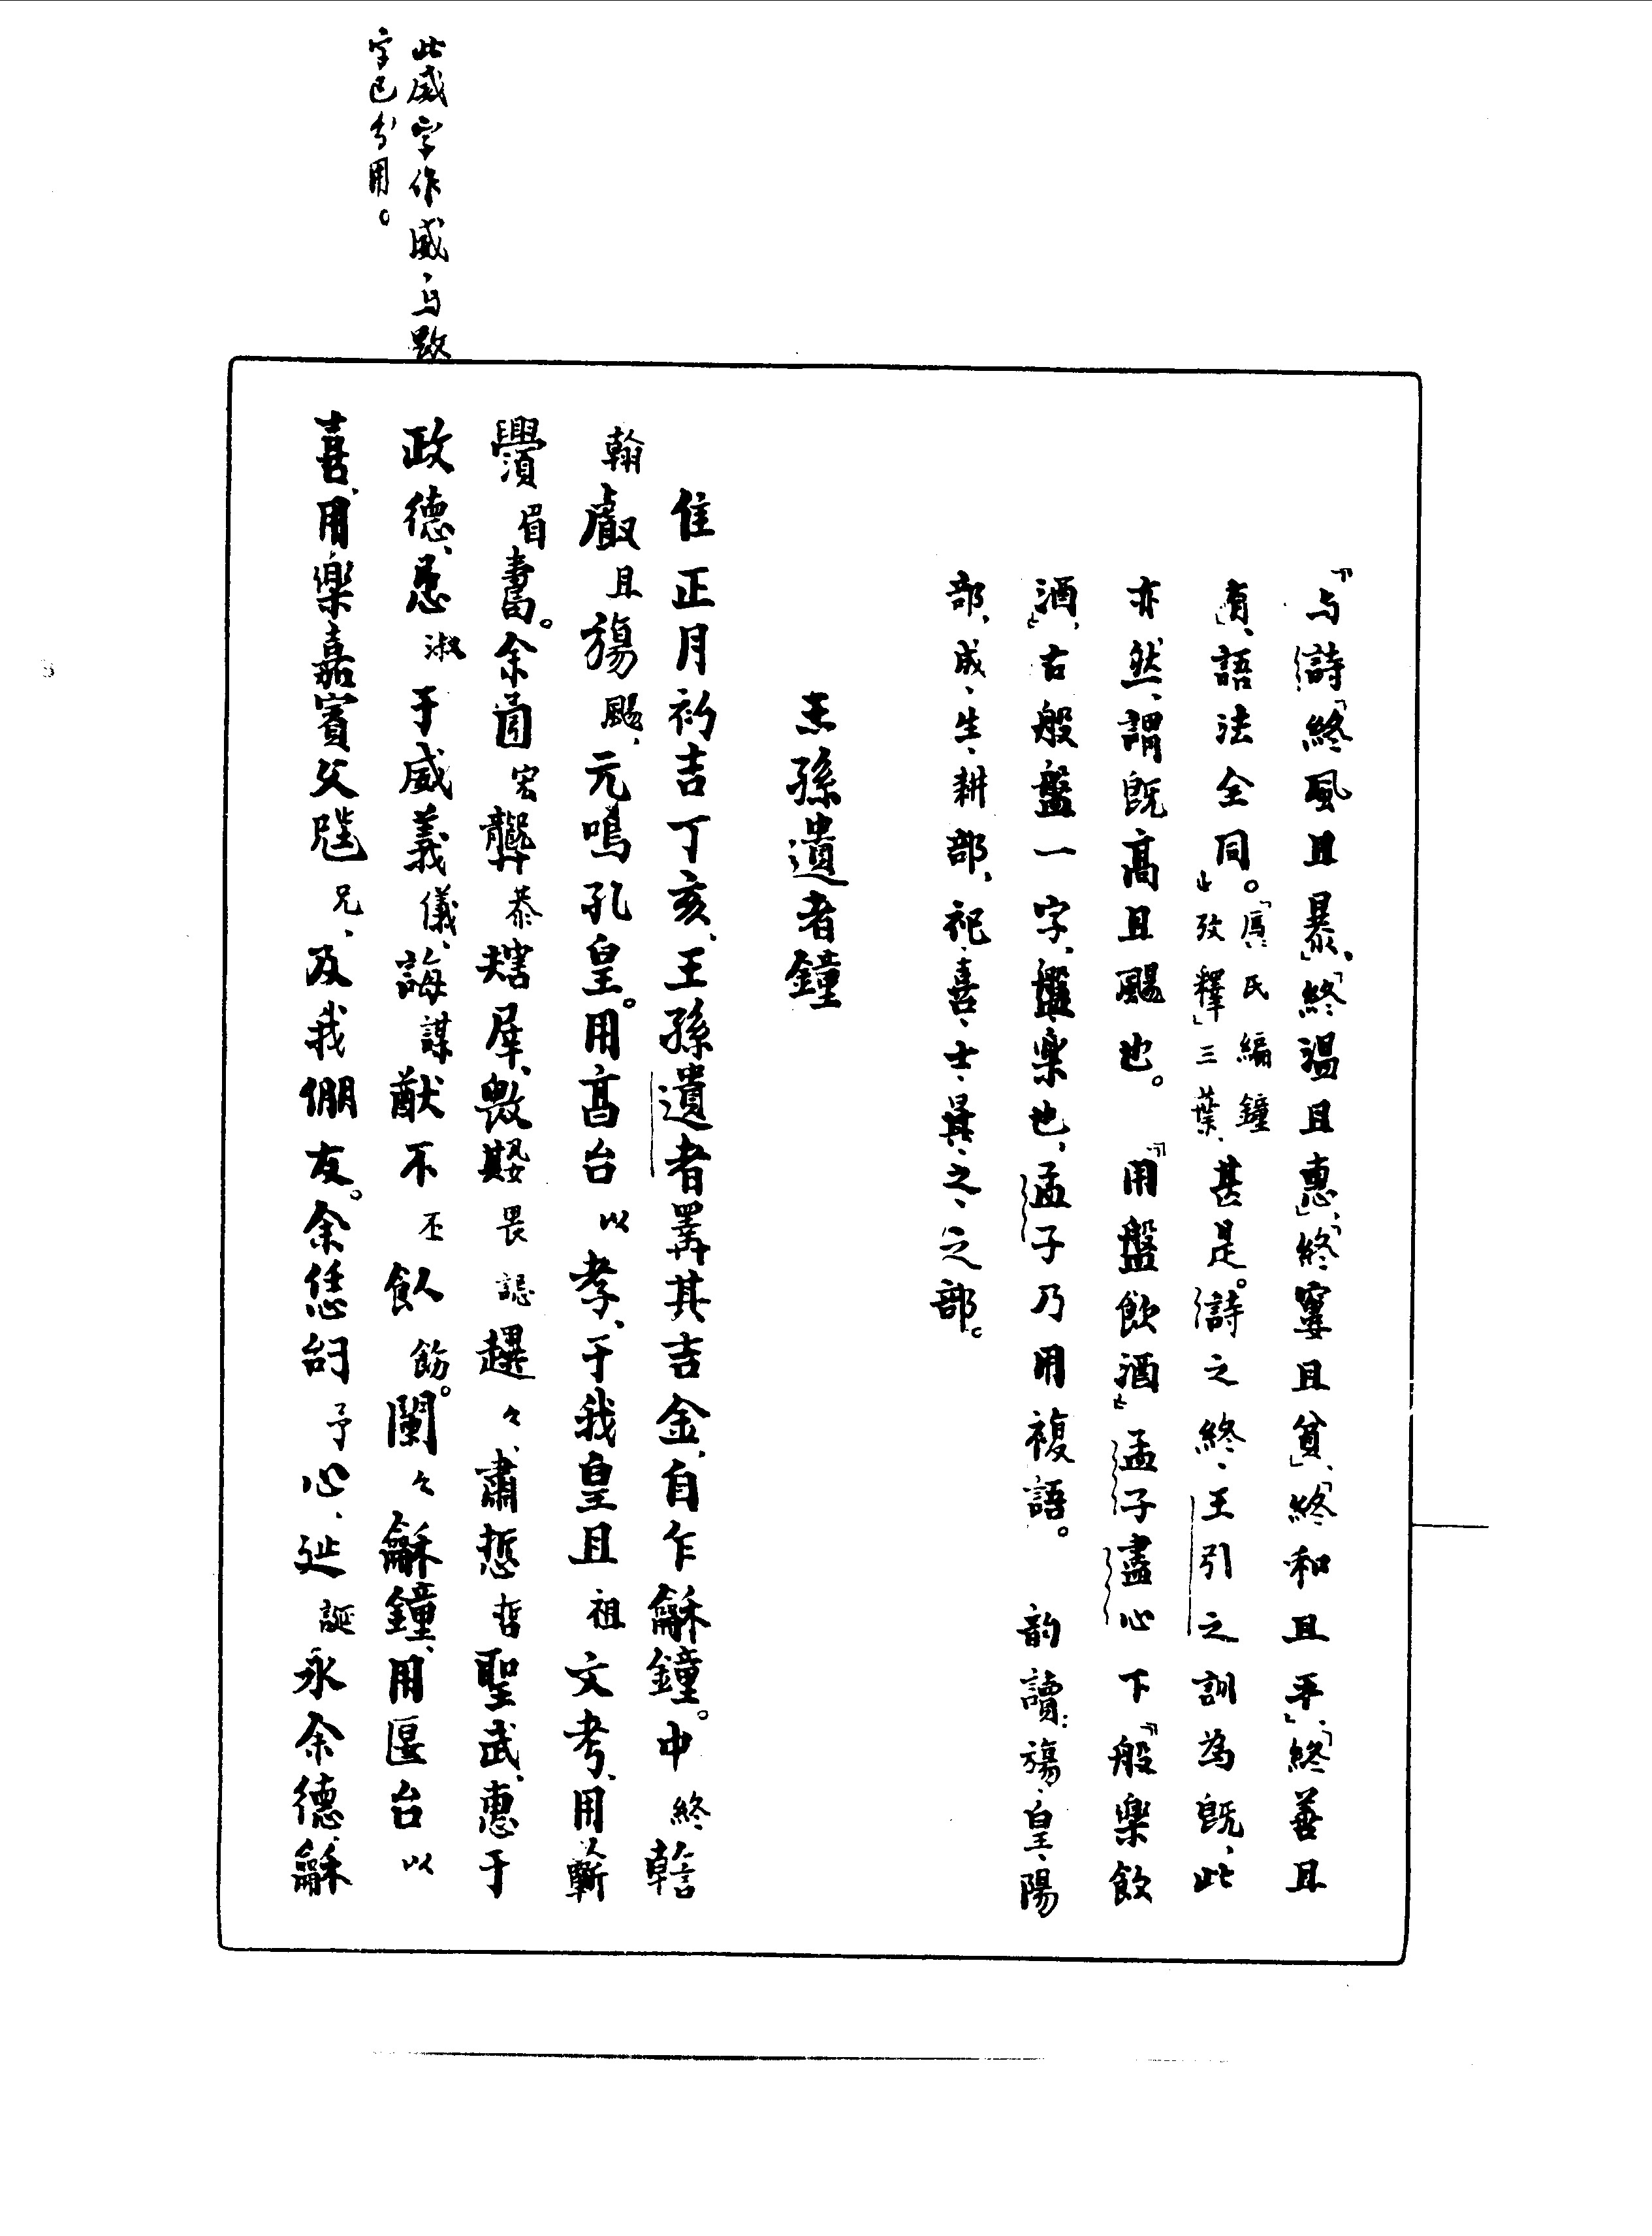 此威字作威、与𢾭
字已分用。
『与詩「終風且暴」、「終溫且惠」、「終窶且貧」、「終和且平」、「終善且
有」、語法全同。』「𠪚氏編鐘攷釋」三葉、甚是。詩之終、王引之訓為既、此
亦然、謂既高且颺也。『用盤飲酒』孟子盡心下『般樂飲
酒』、古般盤一字、盤樂也、孟子乃用複語。 韵讀:瘍、皇、陽
部、成、生、耕部、祀、喜、士、其、之、之部。
王孫遺者鐘
隹正月初吉丁亥、王孫遺者睪其吉金、自乍龢鐘。中終
翰𠭯且颺、元鳴孔皇。用亯台以孝、于我皇且祖文考、用蘄
眉壽。余宏龏恭屖、畏趩々、肅悊哲聖武、惠于
政德、淑于威義儀、誨謀猷不丕飤飭。闌々龢鐘、用匽台以
喜、用樂嘉賓父兄、及我倗友。余恁𠳿予心、誕永余德龢